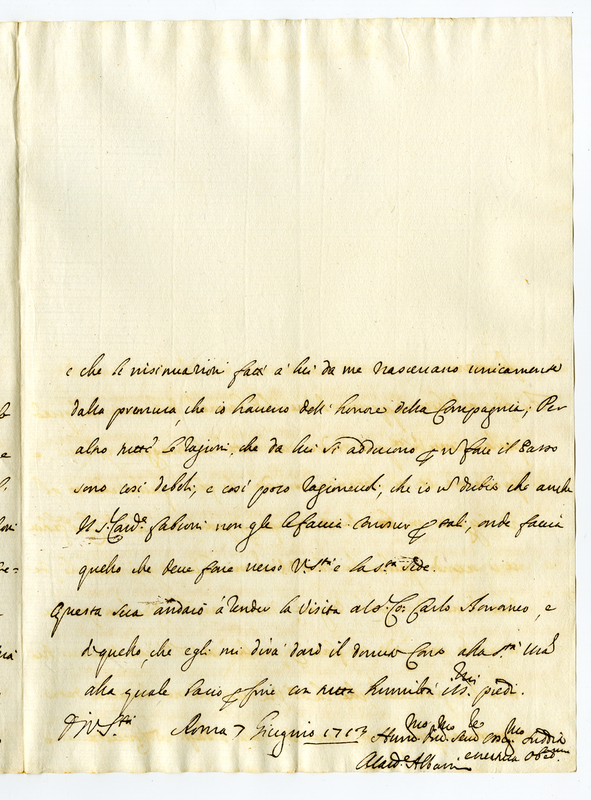 e che le insinuationi fatte à lui da me nascevano unicamente
dalla premura, che io havevo dell'honore della Compagnia; Per
altro tutte le ragioni, che da lui si adducono p nō fare il Passo
sono così deboli, e così poco ragionevoli, che io nō dubito che anche
il S.r Card.e Fabroni non gle le faccia conoscer p tali, onde faccia
quello che deve fare verso V. S.tà e la S.ta Sede.
Questa sera andarò à render la Visita al S.r Co: Carlo Borromeo, e
di quello, che egli mi dirà darò il dovuto Conto alla S.tà V.ra
alla quale bacio p fine con tutta humiltà i SS.mi piedi.
D. V. S.tà
Roma 7 Giugnio 1713
Humo Dmo Seud Obmo Suddito
e Obed.mo
Aless.o Albani